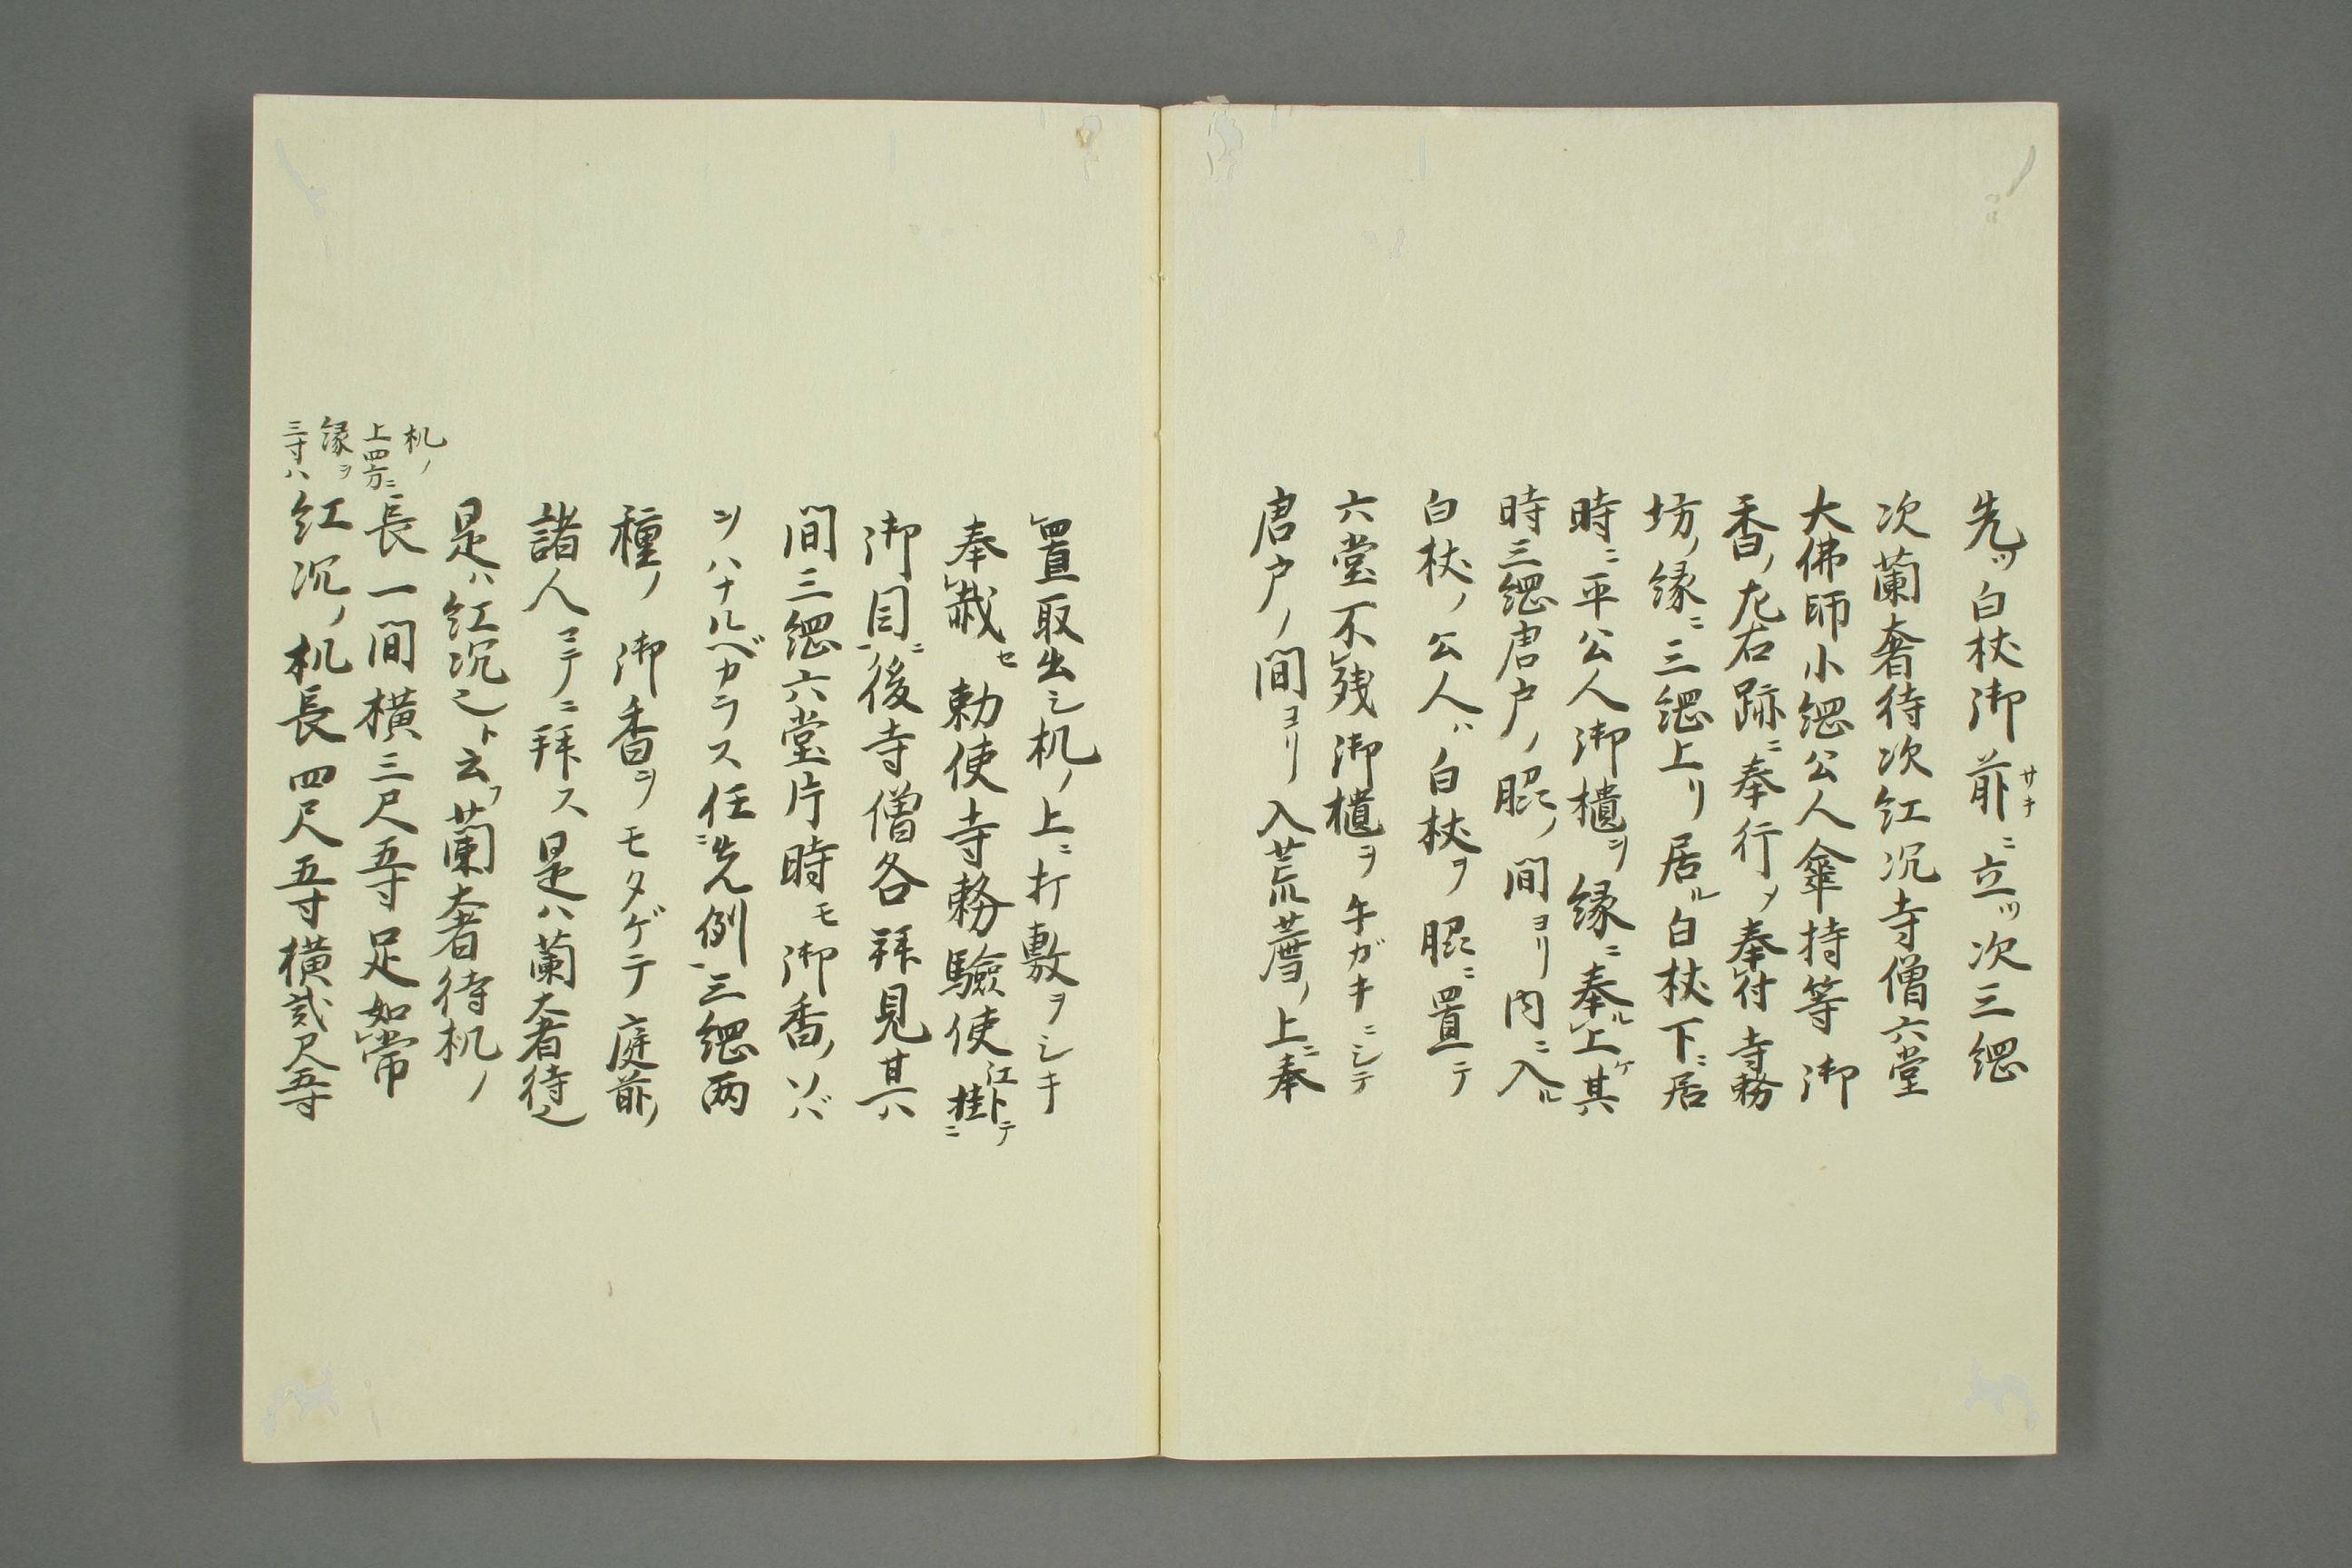 先ツ白杖御前サキニ立ツ次三綱
次蘭奢待次紅沉寺僧六堂
大佛師小綱公人傘持等御
香ノ左右跡ニ奉行メ奉付寺務
坊ノ縁ニ三綱上リ居ル白杖下ニ居
時ニ平公人御櫃ヲ縁ニ奉ル上ケ其
時三綱唐戸ノ脇ノ間ヨリ内ニ入ル
白杖ノ公人ハ白杖ヲ脇ニ置テ
六堂不残御櫃ヲ午ガキニシテ
唐戸ノ間ヨリ入荒薦ノ上ニ奉
置取出シ机ノ上ニ打敷ヲシキ
奉載セ勅使寺務驗使江卜テ掛ニ
御目ニ後寺僧各拜見其ハ
間三綱六堂片時モ御香ノソバ
ヲハナルベカラス任ニ先例一三綱两
種ノ御香ヲモタゲテ庭前ノ
諸人ヱテニ拜ス是ハ蘭奢待之
是ハ紅沉之ト云フ蘭奢待机ノ
長一間横三尺五寸足如常
紅沉ノ机長四尺五寸横貳尺五寸
机ノ
上四方ニ
縁ヲ
三寸ハ